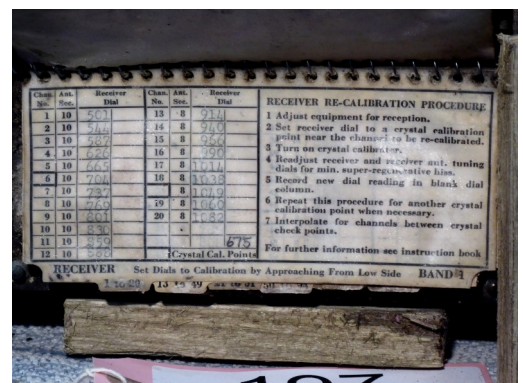 Chan. No. Ant. Sec. Receiver Dial Chan. No. Ant. Sec. Receiver Dial
1 10 501 13 8 914
2 10 544 14 8 940
3 10 587 15 8 966
4 10 626 16 8 990
5 10 665 17 8 1014
6 10 704 18 8 1038
7 10 737 8 1049
8 10 769 19 8 1060
9 10 801 20 8 1082
10 10 830
11 10 859 675
12 10 888 Crystal Cal. Points
RECEIVER RE-CALIBRATION PROCEDURE
1 Adjust equipment for reception.
2 Set receiver dial to a crystal calibration
point near the channel to be re-calibrated.
3 Turn on crystal calibrator.
4 Readjust receiver and receiver ant. tuning
dials for min. super-regenerative hiss.
5 Record new dial reading in blank dial
column.
6 Repeat this procedure for another crystal
calibration point when necessary.
7 Interpolate for channels between crystal
check points.
For further information see instruction book
RECEIVER Set Dials to Calibration by Approaching From Low Side BAND 1
1 to 20